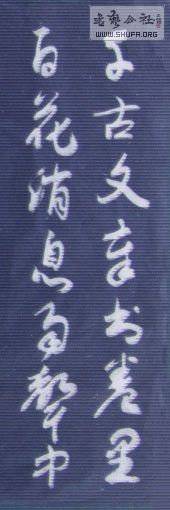 千古文章書卷里
百花消息雨聲中
書藝公社
WWW.SHUFA.ORG